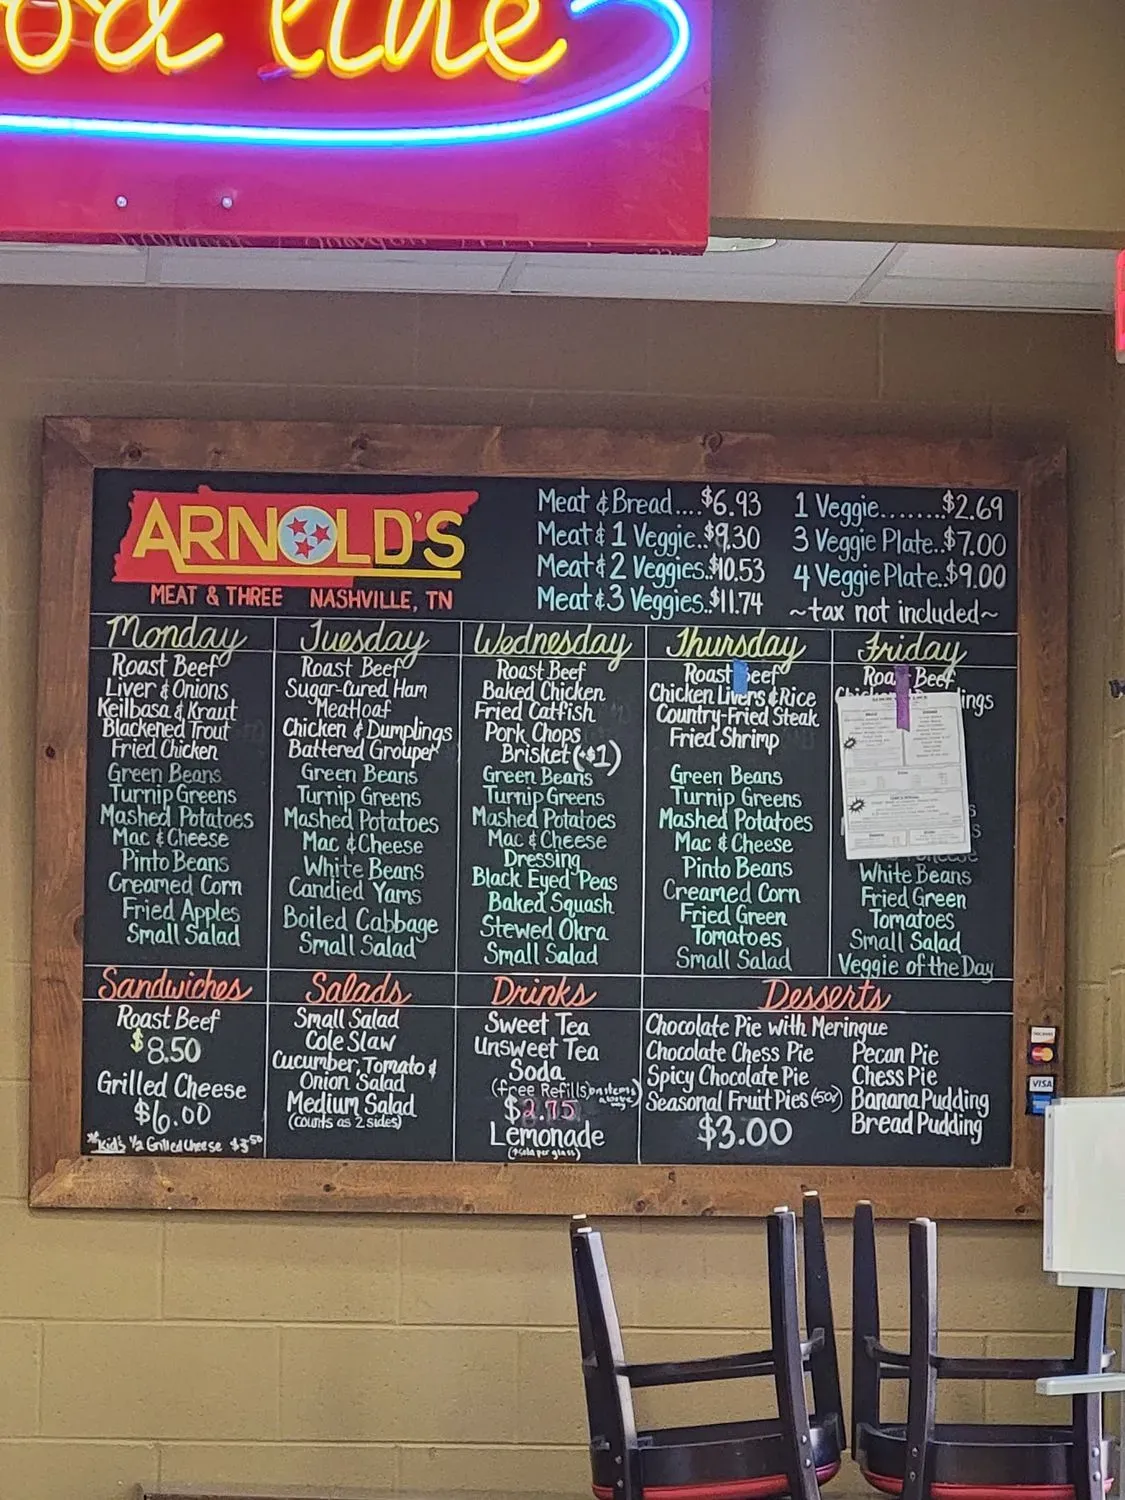 od line
ARNOLD'S
MEAT & THREE NASHVILLE, TN
Meat & Bread....$6.93
Meat & 1 Veggie..$9.30
Meat & 2 Veggies..$10.53
Meat & 3 Veggies..$11.74
1 Veggie........$2.69
3 Veggie Plate..$7.00
4 Veggie Plate..$9.00
~tax not included~
Monday
Roast Beef
Liver & Onions
Keilbasa & Kraut
Blackened Trout
Fried Chicken
Green Beans
Turnip Greens
Mashed Potatoes
Mac & Cheese
Pinto Beans
Creamed Corn
Fried Apples
Small Salad
Tuesday
Roast Beef
Sugar-Cured Ham
Meatloaf
Chicken & Dumplings
Battered Grouper
Green Beans
Turnip Greens
Mashed Potatoes
Mac & Cheese
White Beans
Candied Yams
Boiled Cabbage
Small Salad
Wednesday
Roast Beef
Baked Chicken
Fried Catfish
Pork Chops
Brisket (+$1)
Green Beans
Turnip Greens
Mashed Potatoes
Mac & Cheese
Dressing
Black Eyed Peas
Baked Squash
Stewed Okra
Small Salad
Thursday
Roast Beef
Chicken Livers & Rice
Country-Fried Steak
Fried Shrimp
Green Beans
Turnip Greens
Mashed Potatoes
Mac & Cheese
Pinto Beans
Creamed Corn
Fried Green
Tomatoes
Small Salad
Friday
Roa Beef
ings
White Beans
Fried Green
Tomatoes
Small Salad
Veggie of the Day
Sandwiches
Roast Beef
$8.50
Grilled Cheese
$6.00
Kid's 1/2 Grilled Cheese $3.50
Salads
Small Salad
Cole Slaw
Cucumber, Tomato &
Onion Salad
Medium Salad
(counts as 2 sides)
Drinks
Sweet Tea
Unsweet Tea
Soda
(free Refills on items above only)
$2.75
Lemonade
Desserts
Chocolate Pie with Meringue
Chocolate Chess Pie
Spicy Chocolate Pie
Seasonal Fruit Pies (+50¢)
$3.00
Pecan Pie
Chess Pie
Banana Pudding
Bread Pudding
VISA